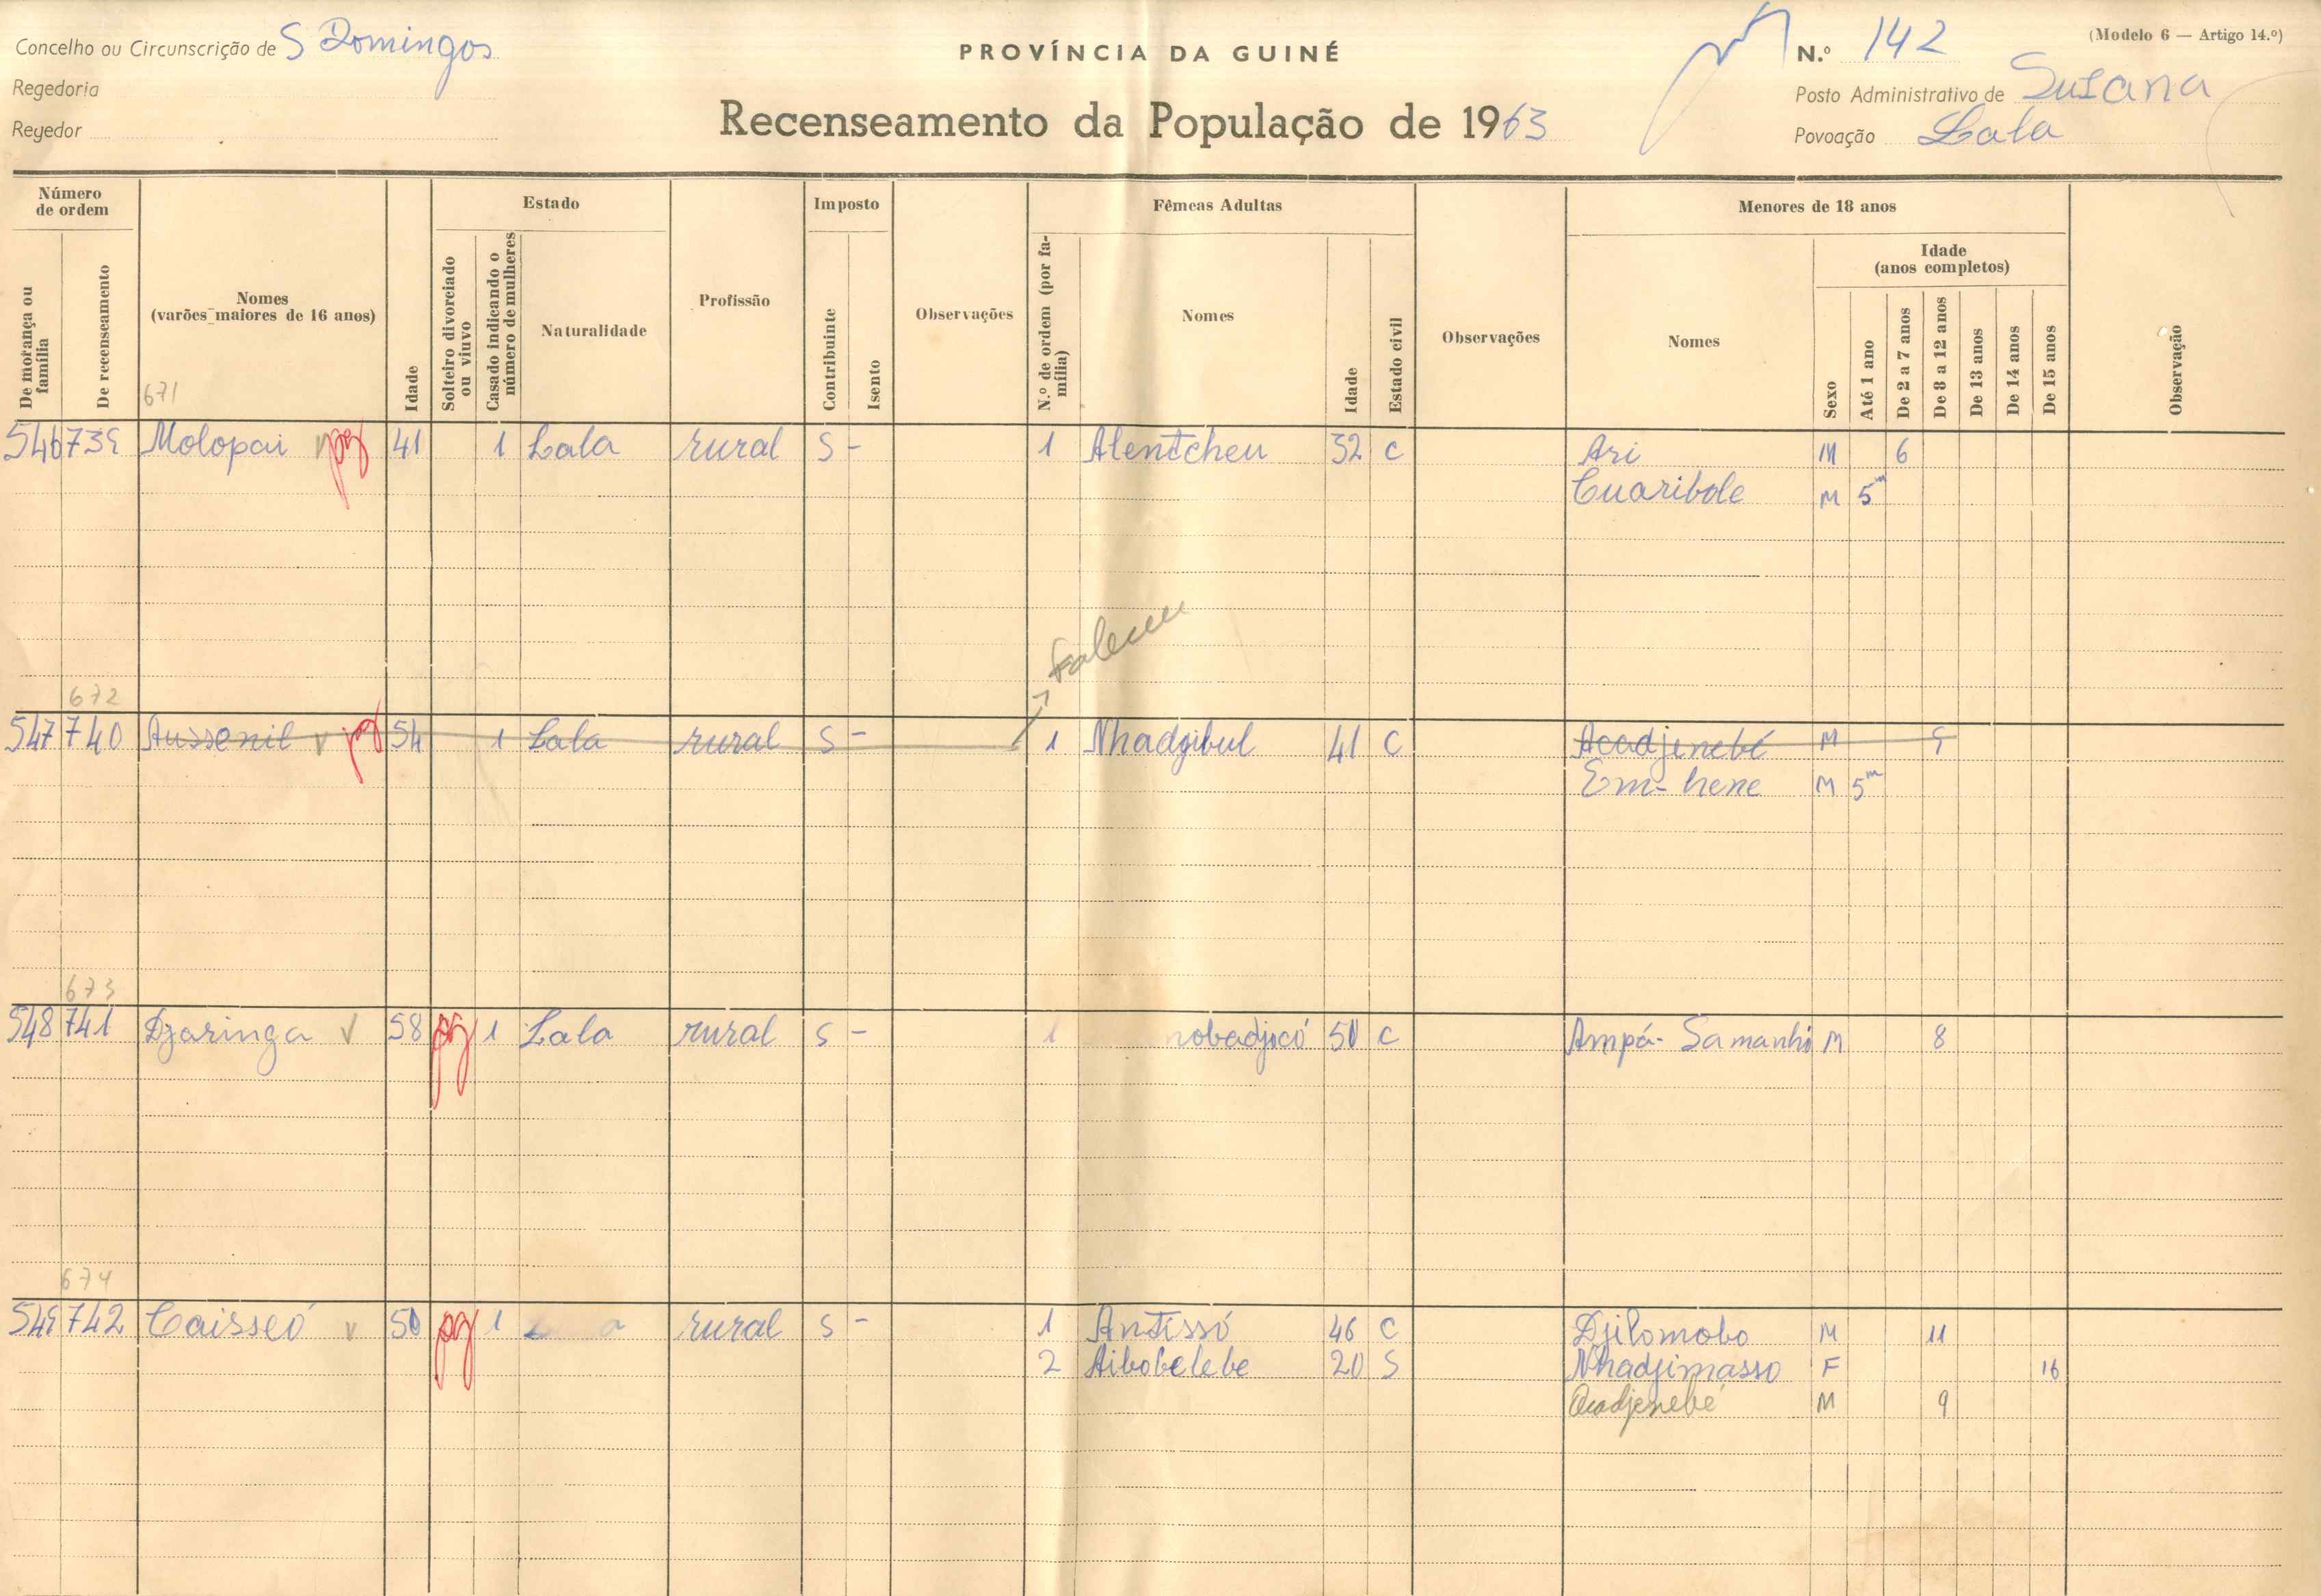 Concelho ou Circunscrição de S Domingos
Regedoria
Regedor
PROVÍNCIA DA GUINÉ
Recenseamento da População de 1963
(Modelo 6 — Artigo 14.º)
N.º 142
Posto Administrativo de Susana
Povoação Lala
Número de ordem
De morança ou família
De recenseamento
Nomes (varões maiores de 16 anos)
Idade
Estado
Solteiro divorciado ou viuvo
Casado indicando o número de mulheres
Naturalidade
Profissão
Imposto
Contribuinte
Isento
Observações
Fêmeas Adultas
N.º de ordem (por família)
Nomes
Idade
Estado civil
Observações
Menores de 18 anos
Nomes
Sexo
Idade (anos completos)
Até 1 ano
De 2 a 7 anos
De 8 a 12 anos
De 13 anos
De 14 anos
De 15 anos
Observação
671
546 739 Molopai v pg 41 1 Lala rural S - 1 Alentcheu 32 C Ari M 6
Cuaribole M 5m
Faleceu
672
547 740 Aussenil v pg 54 1 Lala rural S - 1 Nhadgibul 41 C Acadjenebé M 9
Em-hene M 5m
673
548 741 Djaringa v 58 pg 1 Lala rural S - 1 nobadjocó 50 C Ampá-Samanhi M 8
674
549 742 Caisseó v 50 pg 1 rural S - 1 Antissó 46 C Djilomobo M 11
2 Aibobelebe 20 S Nhadjimasso F 16
Acadjenebé M 9